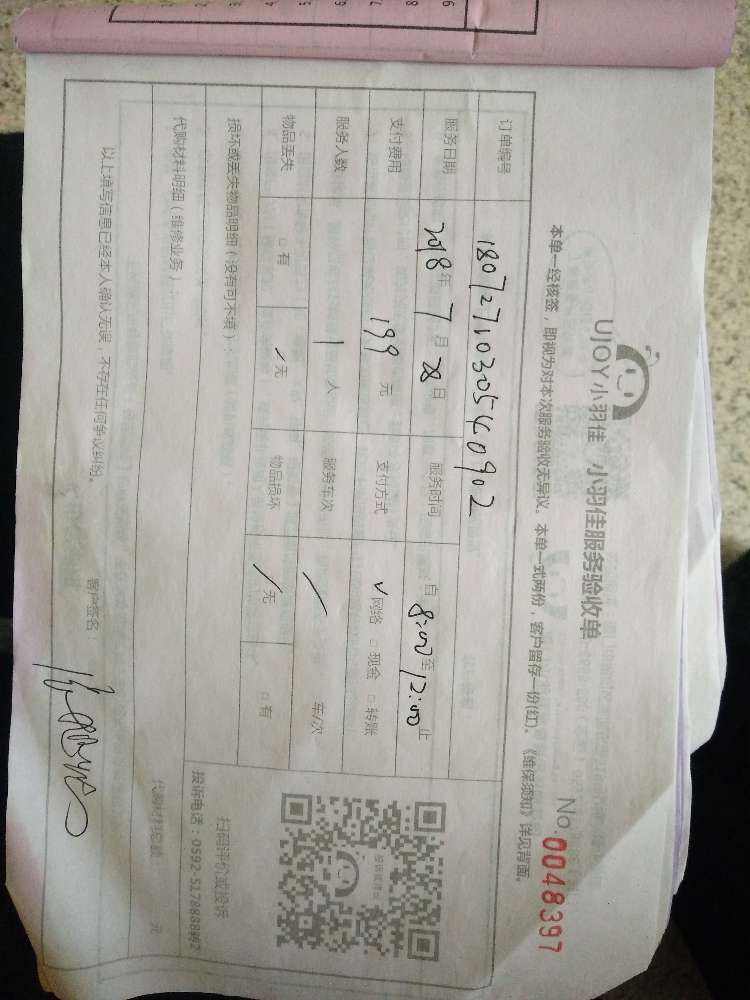 UJOY小羽佳 小羽佳服务验收单
No. 0048397
本单一经核签，即视为对本次服务验收无异议。本单一式两份，客户留存一份(红)。《维保须知》详见背面。
订单编号 180727103054 0902
服务日期 2018年7月28日 服务时间 自8:00至12:00止
支付费用 199元 支付方式 ✓网络 □现金 □转账
服务人数 1人 服务车次 / 车/次
物品丢失 □有 ✓无 物品损坏 ✓无 □有
损坏或丢失物品明细（没有可不填）：
扫码评价或投诉
投诉电话：0592-5178888转2
代购材料明细（维修业务）：
代购材料总额 元
以上填写信息已经本人确认无误，不存在任何争议纠纷。
客户签名